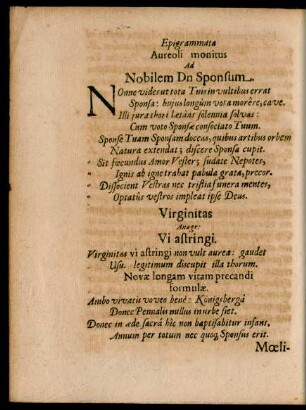 Epigrammata
Aureoli monitus
Ad
Nobilem Dn Sponsum.
NOnne viderut tota Tuis in vultibus errat
Sponsa: hujus longùm vota morêre, cave.
Illi jura thori lætaas solemnia solvas:
Cum voto Sponsæ consociato Tuum.
Sponse Tuam Sponsam doceas, quibus artibus orbem
Natura extendat; discere Sponsa cupit.
„ Sit fœcundus Amor Vester; sudate Nepotes,
„ Ignis ab igne trahat pabula grata, precor.
„ Dissocient Vestras nec tristia funera mentes,
„ Optatûs vestros impleat ipse Deus.
Virginitas
Anagr:
Vi astringi.
Virginitas vi astringi non vult aurea: gaudet
Usu. legitimum discupit illa thorum.
Novæ longam vitam precandi
formulæ.
Ambo vivatis voveo benè: Königsbergâ
Donec Pennalis nullus in urbe siet.
Donec in æde sacrâ hîc non baptisabitur infans,
Annum per totum nec quoq; Sponsus erit.
Mœli-